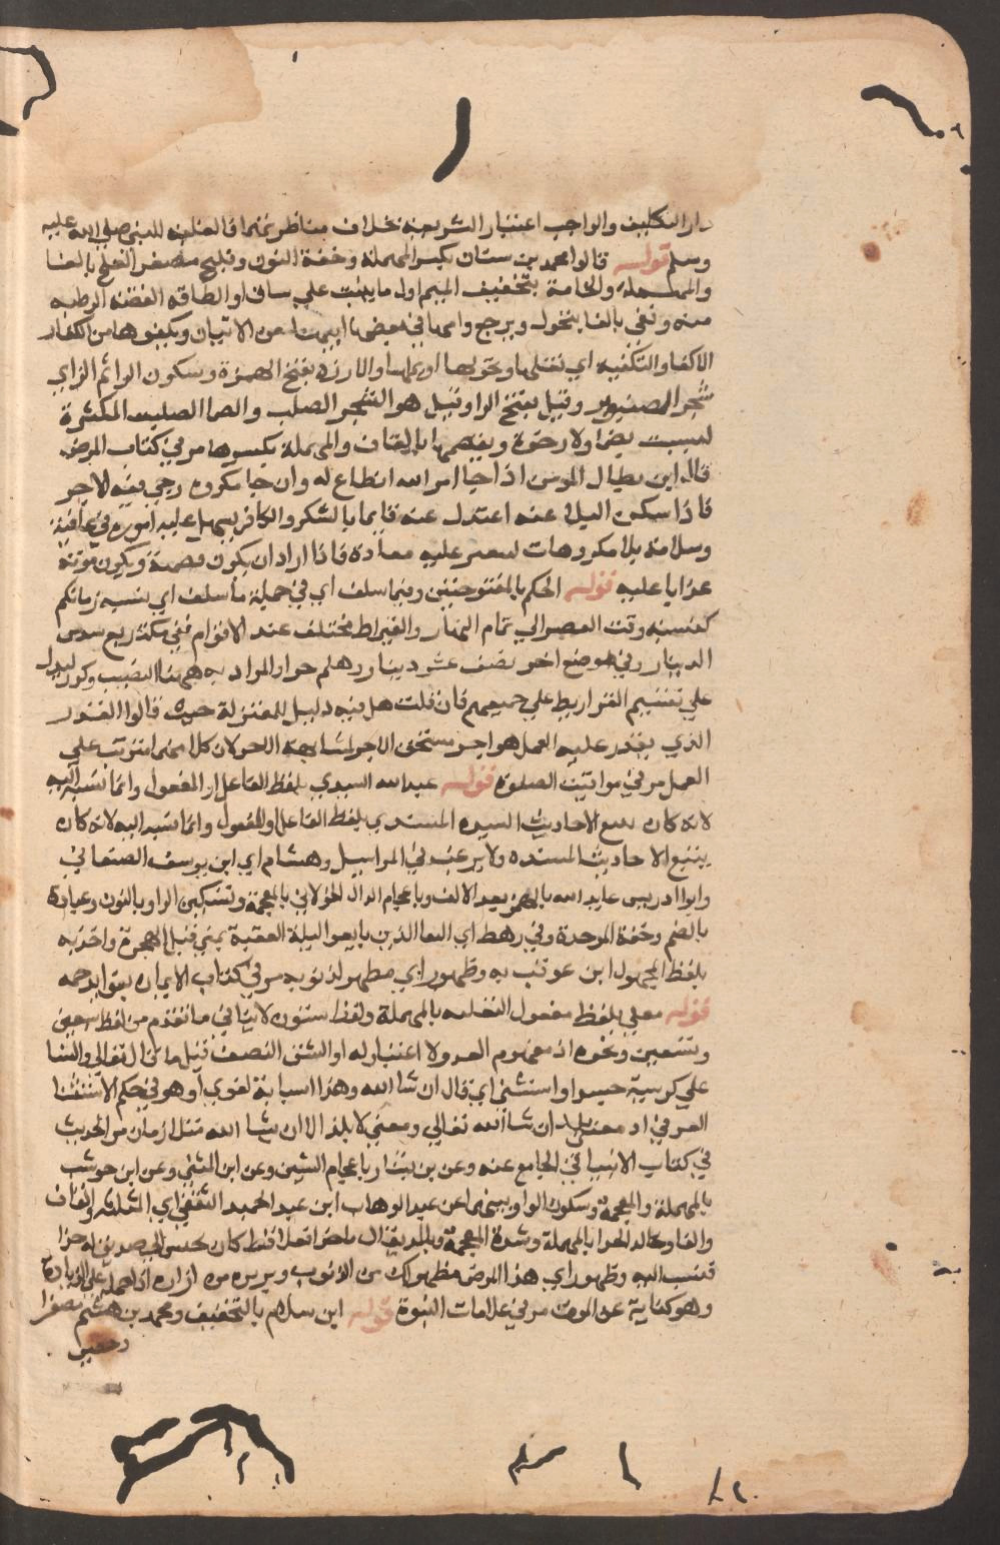 دار التكليف والواجب اعتبار الشريعة بخلاف مناظرتهما فالغلبة للنبي صلى الله عليه
وسلم قوله قالوا محمد بن سنان بكسر المهملة وخفة النون وفليح مصغر الفلح بالفا
والمهملة والخامة بتخفيف الميم اول ما ينبت على ساق او الطاقه الغضة الرطبه
منه وتفي بالفا يتحول ويرجع واتها في بعضها اتيها من الاتيان ويكفوها من الكفا و
الاكفا والتكفيه اي تقلبها وتحولها او يملها والارزه بفتح الهمزة وسكون الرا ثم الزاي
شجر الصنوبر وقيل بفتح الرا وقيل هو الشجر الصلب والصما الصلبه المكتنزة
ليست بجوفا ولا رخوة ويقصمها بالقاف والمهملة يكسرها مر في كتاب المرض
قال ابن بطال المومن اذا جا امر الله انطاع له وان جا مكروه رجي فيه الاجر
فاذا سكن البلا عنه اعتدل عنه قايما بالشكر والكافر يسهل عليه اموره في عافية
وسلامة بلا مكروهات ليعسر عليه معاده فاذا اراد ان يكون قصمه ويكون موته
عذابا عليه قوله الحكم بالمفتوحتين وفيما سلف اي في جملة ما سلف اي نسبه زمانكم
كنسبه وقت العصر الى تمام النهار والقيراط مختلف عند الاقوام ففي مكة ربع سدس
الدينار وفي موضع اخر نصف عشر دينار وهلم جرا والمراد به ههنا النصيب وكرر ليدل
على تقسيم القراريط على جميعهم فان قلت هل فيه دليل للمعتزلة حيث قالوا القدر
الذي يقدر عليه العمل هو اجر مستحق الاجر
العمل مر في مواقيت الصلوة قوله عبدالله المسندي بلفظ الفاعل او المفعول وانما نسب اليه
لانه كان يتبع الاحاديث المسنده المسندي بلفظ الفاعل او المفعول وانما نسب اليه لانه كان
يتتبع الاحاديث المسنده ولا يرغب في المراسيل وهشام اي ابن يوسف الصنعاني
وابوا ادريس عايد الله بالهمز بعد الالف وباعجام الذال الخولاني بالمعجمة وتسكين الواو بالنون وعبادة
بالضم وخفة الموحدة وفي رهط اي النقبا الذين بايعوا ليلة العقبة بمنى قبل الهجرة واخذ به
بلفظ المجهول ابن عوقب به وطهور اي مطهر لذنوبه مر في كتاب الايمان بفوايد جمه
قوله معلى بلفظ مفعول التعليه بالمهملة ولفظ ستون لا ينافي ما تقدم من لفظ سبعين
وتسعين ونحوه اذ مفهوم العدد لا اعتبار له او الشق النصف قيل ما قال تعالى والقينا
على كرسيه جسدا واستثنى اي قال ان شا الله وهذا استثنا لغوي او هو في حكم الاستثنا
العرفي اذ معنى يلد ان شا الله تعالى ومعنى لا يلد الا ان شا الله مثلازمان مر الحديث
في كتاب الانبيا في الجامع عنه وعن بن بشار باعجام الشين وعن ابن المثنى وعن ابن حوشب
بالمهملة والمعجمة وسكون الواو بينهما عن عبد الوهاب ابن عبد الحميد الثقفي اي المثلثة والقاف
والفا وخالد الحذا بالمهملة وشدة المعجمة وبالمد يقال ما حذا نعلا قط كان يجلس الى صديق له حذا
فنسب اليه وطهور اي هذا المرض مطهر لك من الذنوب وتزيره من ازاره اذا حمله على الزيارة
وهو كناية عن الموت مر في علامات النبوة قوله ابن سلام بالتخفيف ومحمد بن هشيم مصغرا
وحصين